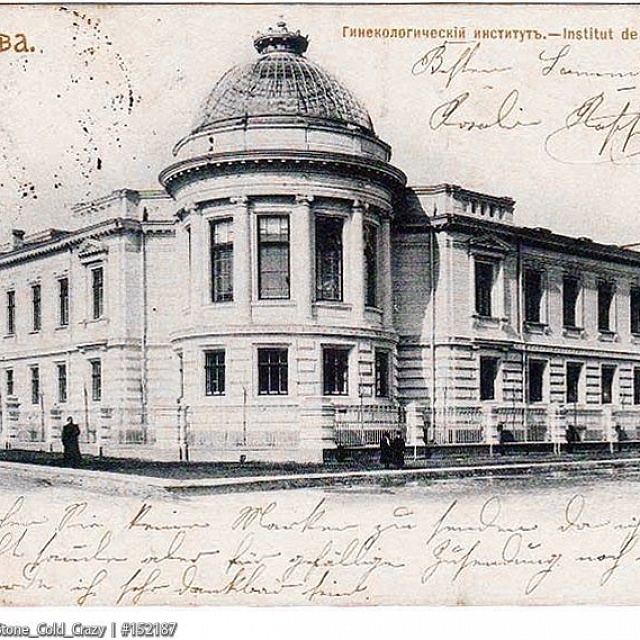 ва.
Гинекологическій институтъ.—Institut de
Besten
Rosalie
Sie keine Marken zu senden da
aber für gefällige Zusendung noch
ich sehr dankbar sein.
Stone_Cold_Crazy | #152187